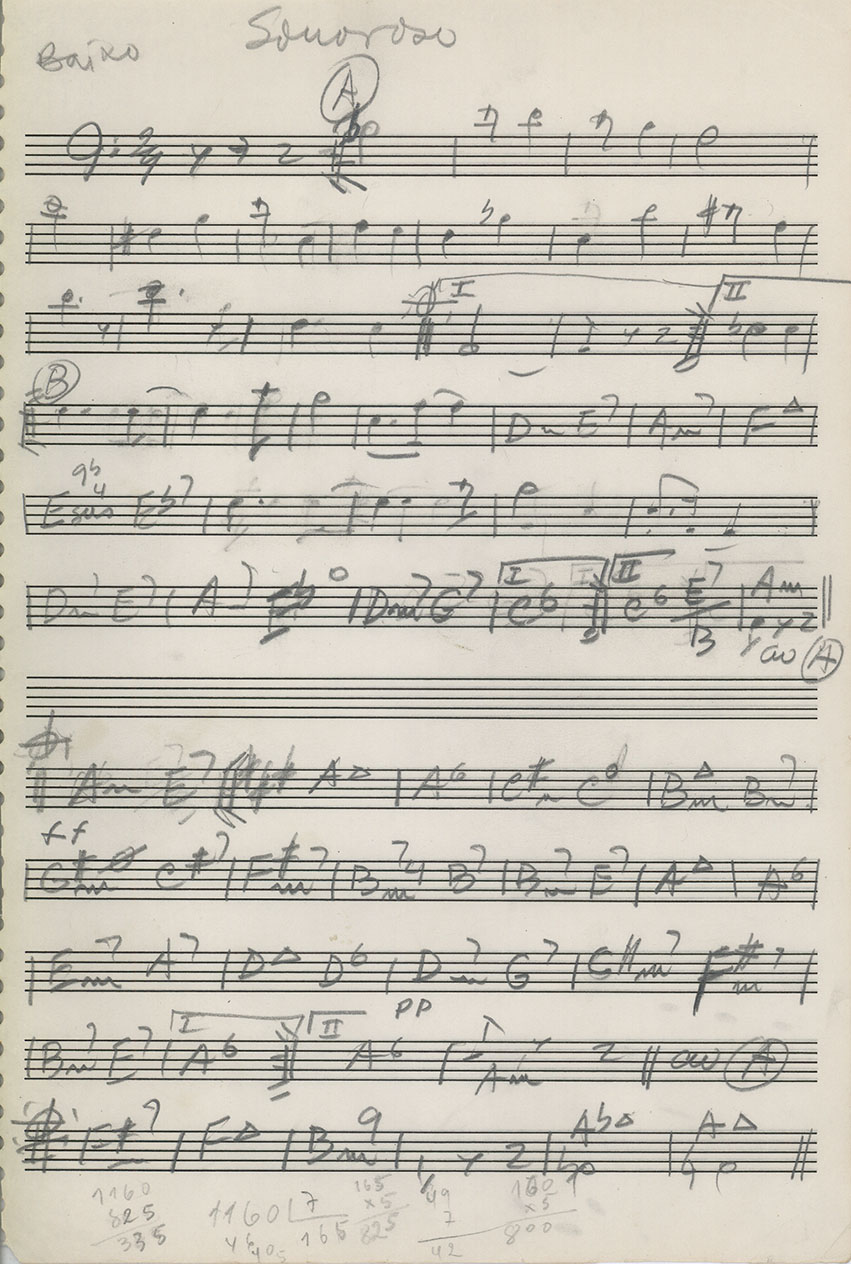 Sonoroso
Baixo
A
I II
B
Dm E7 Am7 F△
9b
4
Esus Eb7
I II
Dm7 E7 A-7 Dm7 G7 C6 C6 E7 Am
B
ao A
Am E7 A△ A6 C#m Cº Bm△ Bm7
ff
G#mø C#7 F#m7 Bm74 B7 Bm7 E7 A△ A6
Em7 A7 D△ D6 Dm7 G7 C#m7 F#m7
pp
I II
Bm7 E7 A6 A6 Am ao A
F#7 F△ Bm9 Ab△ A△
1160
825
335
1160 7
165
165
x5
825
49
7
42
160
x5
800